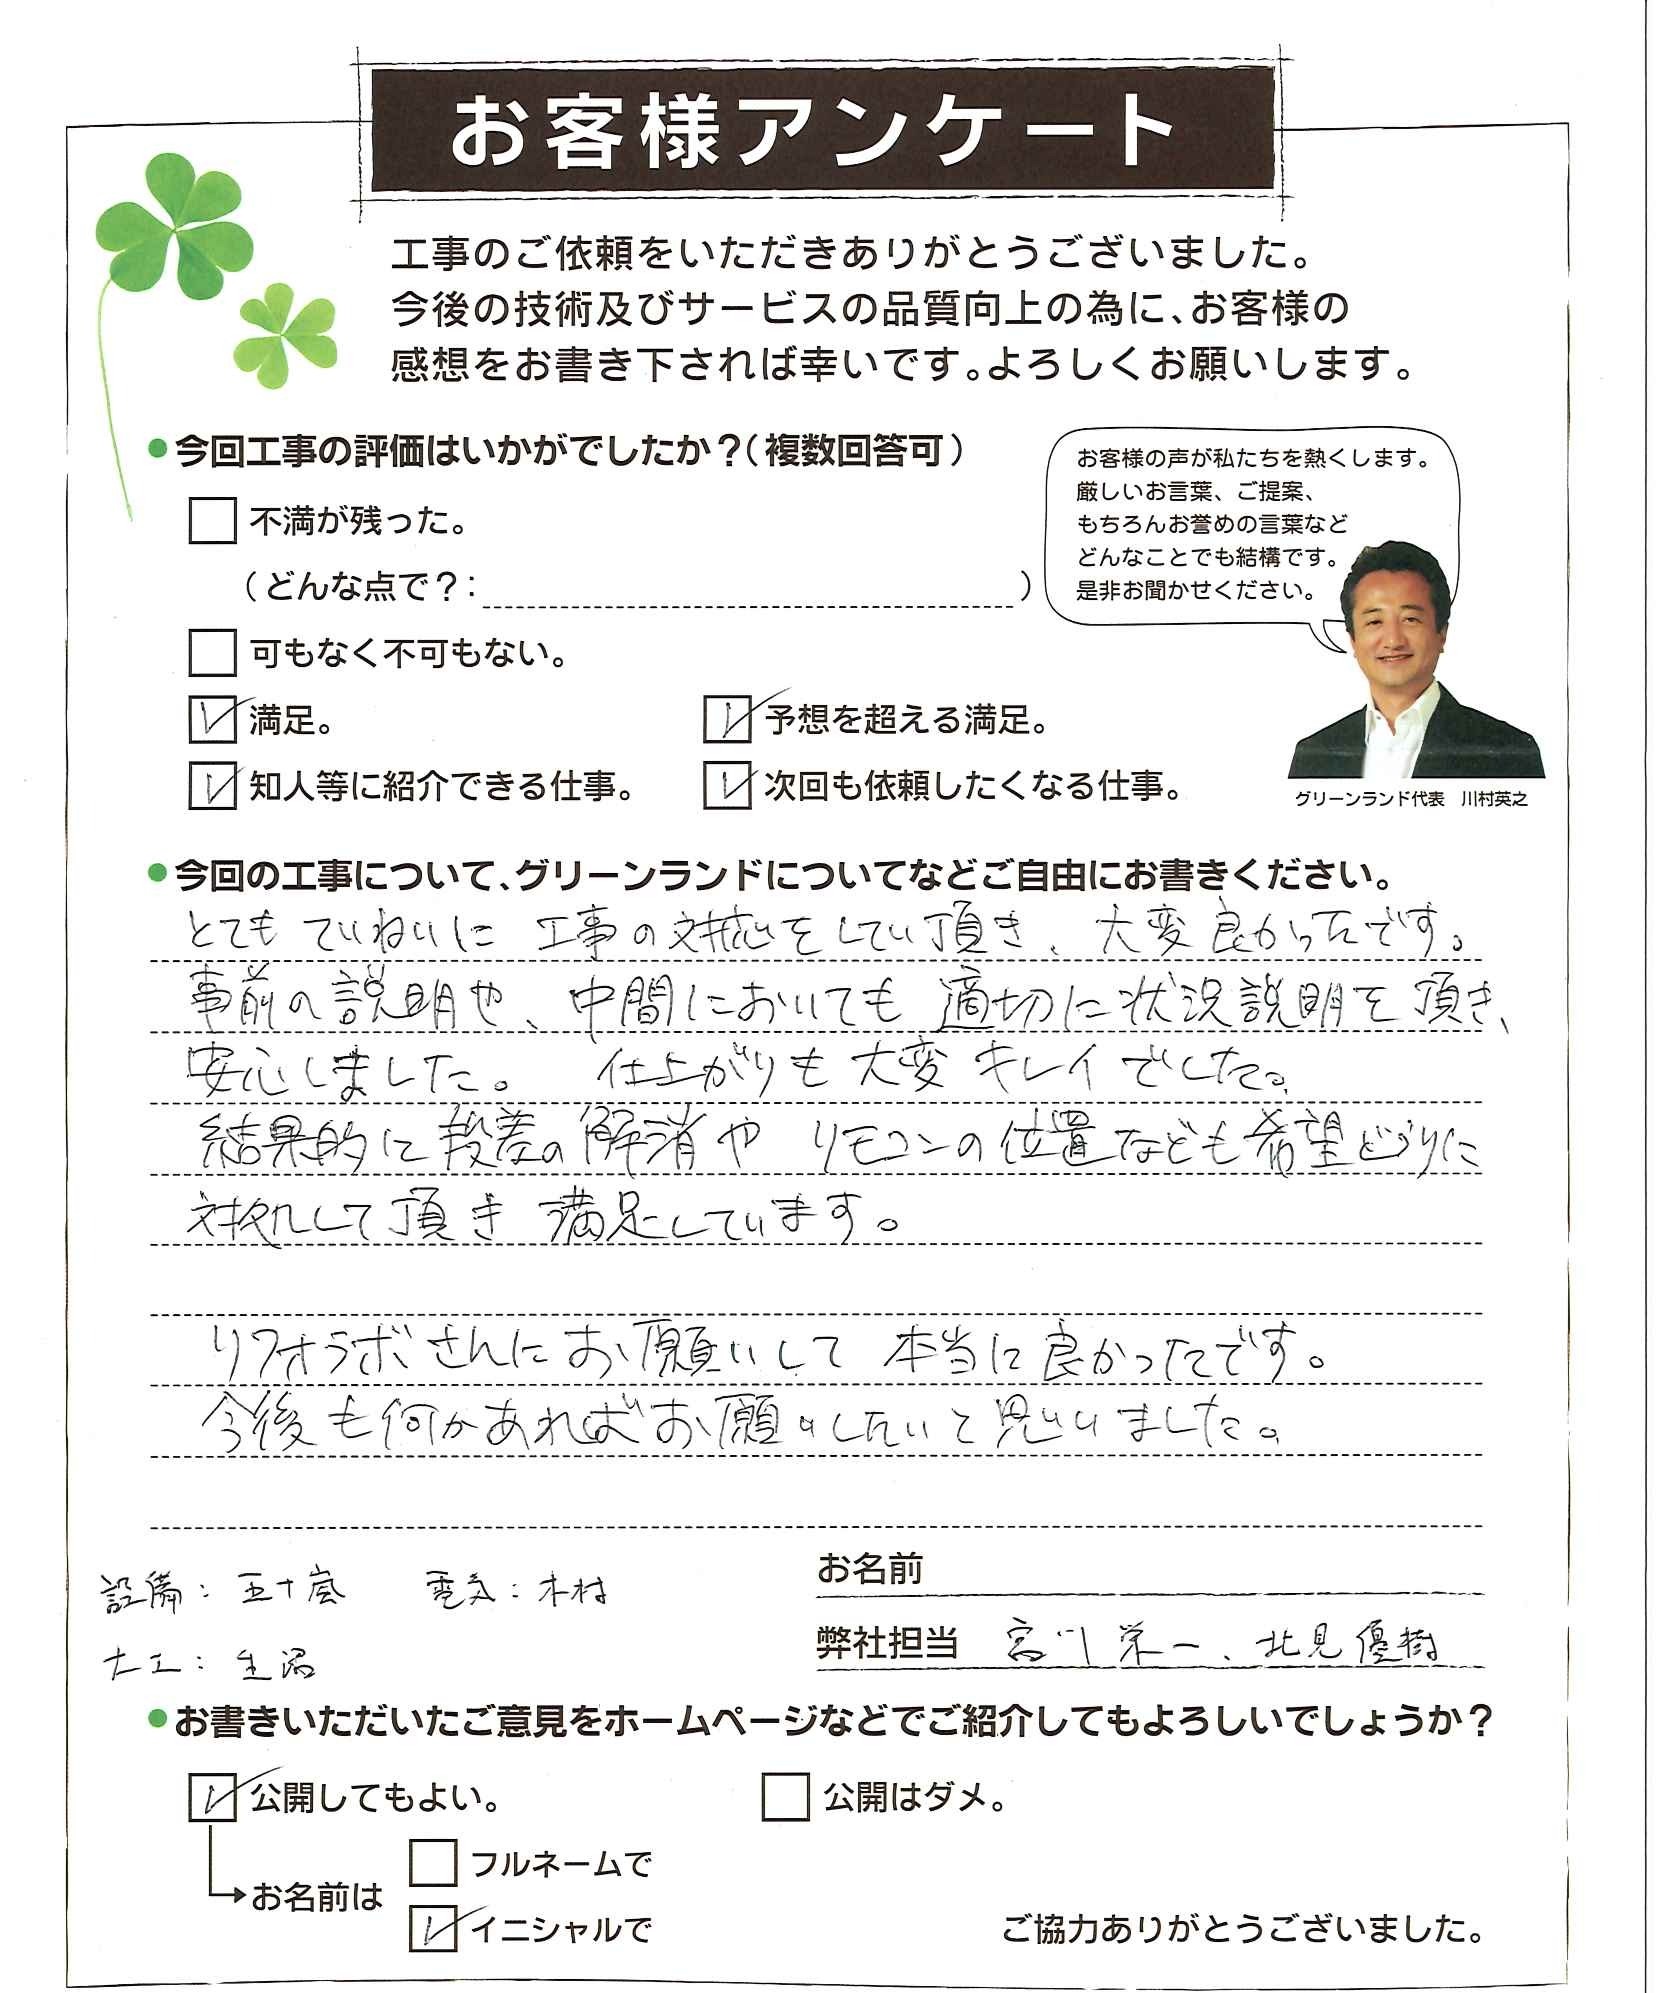 お客様アンケート
工事のご依頼をいただきありがとうございました。
今後の技術及びサービスの品質向上の為に、お客様の
感想をお書き下されば幸いです。よろしくお願いします。
今回工事の評価はいかがでしたか？（複数回答可）
不満が残った。
（どんな点で？：　）
可もなく不可もない。
満足。
予想を超える満足。
知人等に紹介できる仕事。
次回も依頼したくなる仕事。
お客様の声が私たちを熱くします。
厳しいお言葉、ご提案、
もちろんお誉めの言葉など
どんなことでも結構です。
是非お聞かせください。
グリーンランド代表　川村英之
今回の工事について、グリーンランドについてなどご自由にお書きください。
とても ていねいに 工事の対応をしてい頂き、大変良かったです。
事前の説明や、中間においても適切に状況説明を頂き、
安心しました。 仕上がりも大変キレイでした。
結果的に段差の解消や リモコンの位置なども希望どうりに
対処して頂き 満足しています。
リフォラボさんにお願いして 本当に良かったです。
今後も何かあればお願いしたいと思いました。
設備：五十嵐　電気：木村
大工：
お名前
弊社担当　宮川栄一、北見優樹
お書きいただいたご意見をホームページなどでご紹介してもよろしいでしょうか？
公開してもよい。
公開はダメ。
お名前は
フルネームで
イニシャルで
ご協力ありがとうございました。